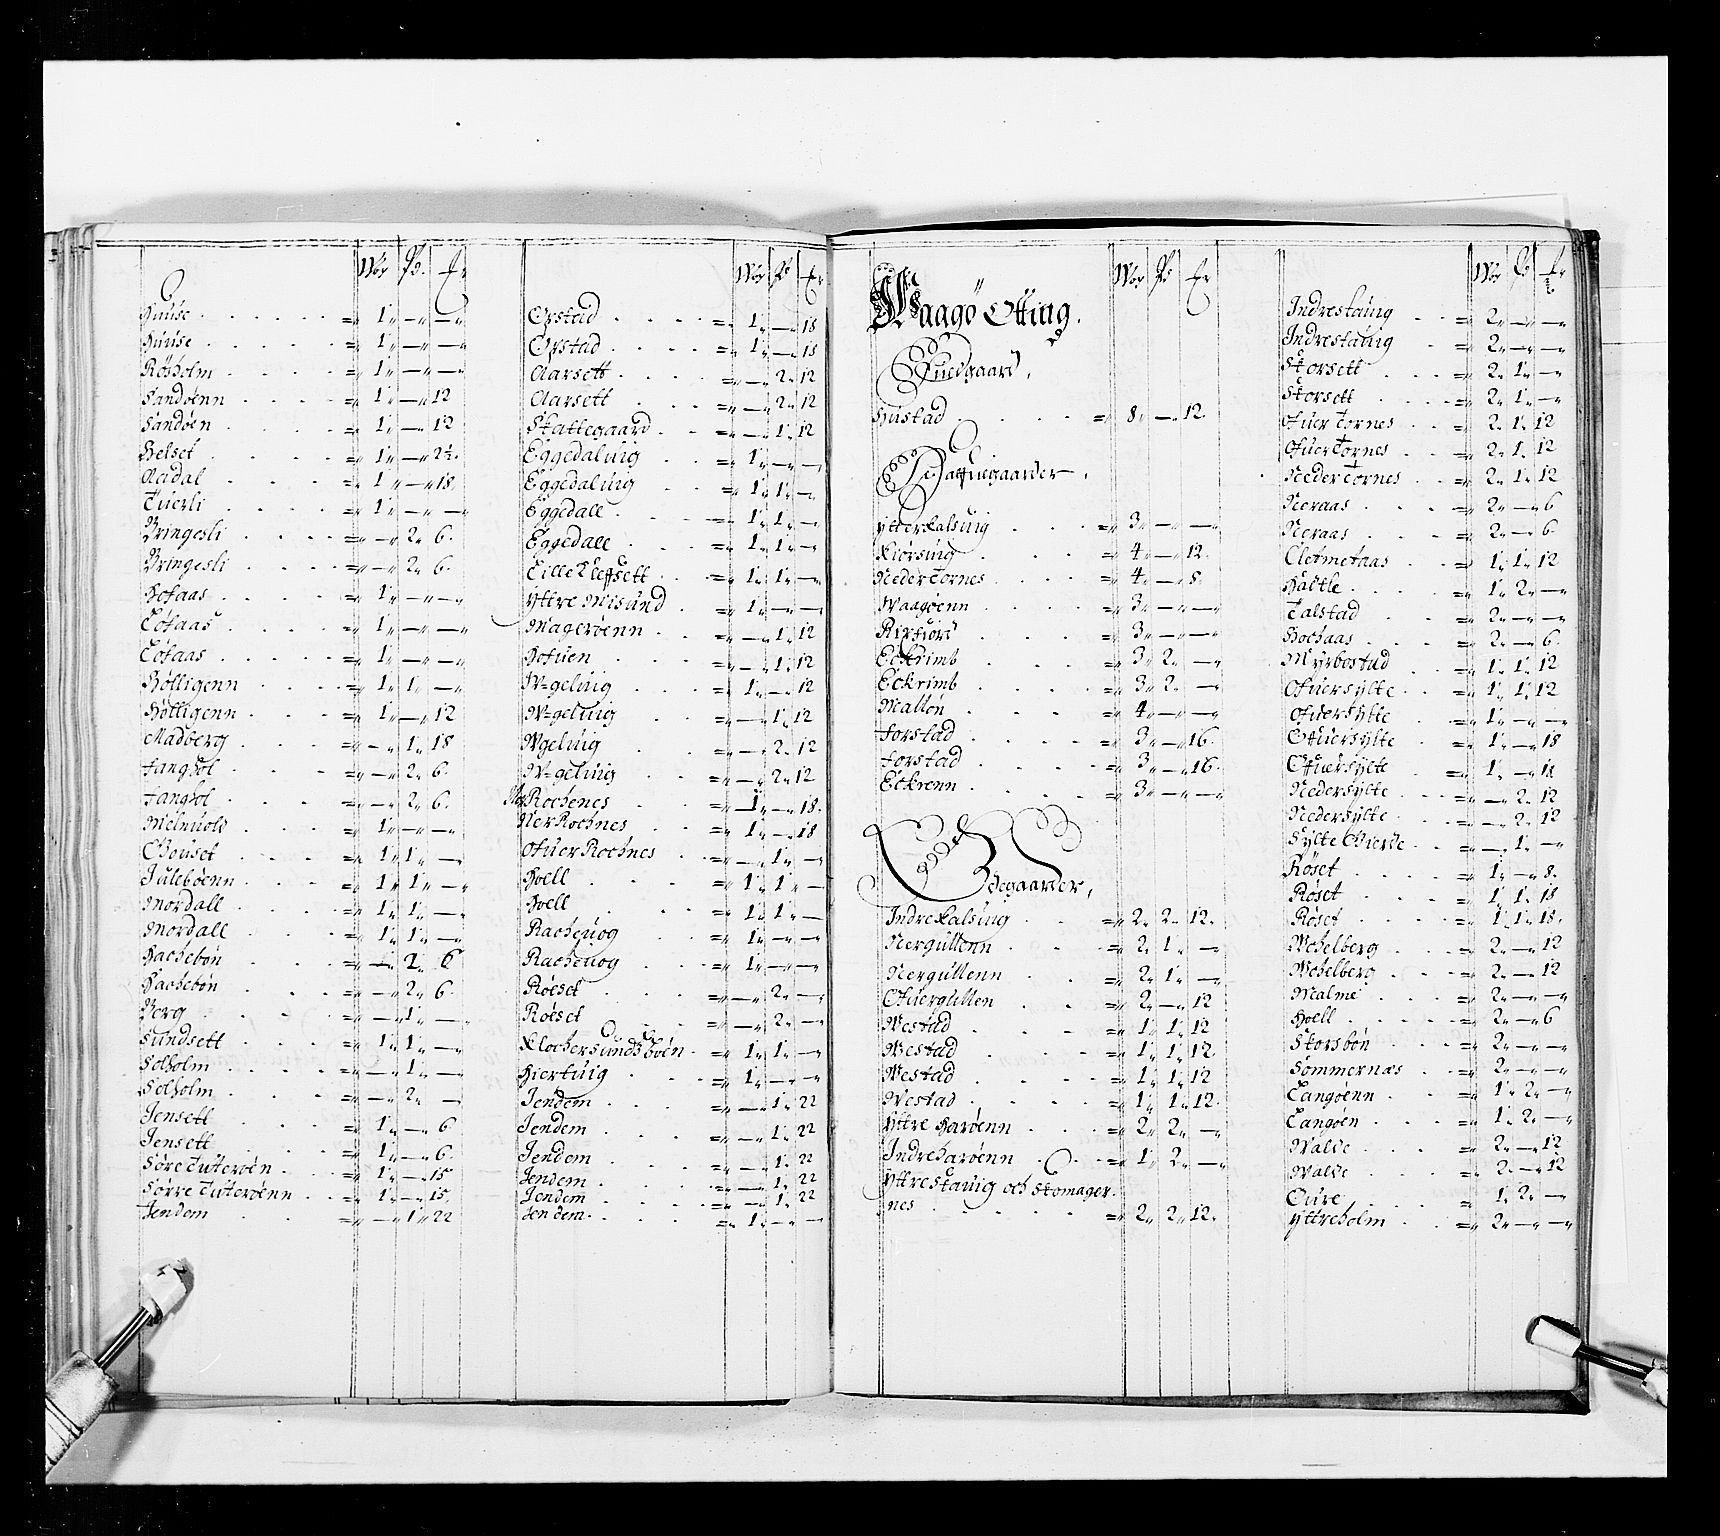 Wör Pd. Er
Huuse = 1 „ — „ — „
Huuse = 1 „ — „ — „
Rösholm = 1 „ — „ — „
Sandöenn = 1 „ — „ 12
Sandöen = 1 „ — „ 12
Helset = 1 „ — „ 2½
Aadal = 1 „ — „ 18
Tuerli = 1 „ — „ — „
Bringesli = — „ 2 „ 6
Bringesli = — „ 2 „ 6
Hofaas = 1 „ — „ — „
Löfaas = 1 „ — „ — „
Löfaas = 1 „ — „ — „
Hölligenn = 1 „ 1 „ — „
Hölligenn = 1 „ — „ 12
Madberg = — „ 1 „ 18
Fanghol = — „ 2 „ 6
Fanghol = — „ 2 „ 6
Melmuold = 1 „ — „ — „
Gouset = 1 „ 1 „ — „
Juleböenn = 1 „ 1 „ — „
Mordall = 1 „ 1 „ — „
Mordall = 1 „ 1 „ — „
Hachebön = — „ 2 „ 6
Hachebön = — „ 2 „ 6
Berg = — „ 1 „ — „
Sundsett = 1 „ 1 „ — „
Solholm = — „ 1 „ — „
Solholm = — „ 2 „ —
Jensett = 1 „ — „ 6
Jensett = 1 „ — „ 6
Söre Tuteröen = 1 „ — „ 15
Sörre Tuteröenn = 1 „ — „ 15
Jendem = — „ 1 „ 22
Wör Pd Er
Orstad = 1 „ — „ 18
Orstad = 1 „ — „ 18
Aarsett = — „ 2 „ 12
Aarsett = — „ 2 „ 12
Skattegaard = — „ 1 „ 12
Eggedaluig = 1 „ — „ — „
Eggedaluig = 1 „ 1 „ — „
Eggedall = 1 „ 1 „ — „
Eggedall = 1 „ 1 „ — „
Lille Cleffsett = 1 „ 1 „ — „
Yttre Misund = 1 „ — „ — „
Mageröenn = — „ 1 „ 12
Hofuen = — „ 1 „ 12
W=geluig = 1 „ — „ 12
W=geluig = — „ 1 „ 12
Wgeluig = — „ 2 „ 12
W=geluig = — „ 2 „ 12
Ner Rochenes = 1 „ — „ 18
Ner Rochnes = 1 „ — „ 18
Ofuer Rochnes = — „ 1 „ — „
Hoell = 1 „ 1 „ —
Hoell = 1 „ 1 „ —
Racheuog = 1 „ — „ — „
Racheuog = 1 „ — „ — „
Röeset = — „ 2 „ — „
Röeset = — „ 2 „ — „
Klochersunds böen = 1 „ 1 „ — „
Hiertuig = 1 „ — „ — „
Jendem = — „ 1 „ 22
Jendem = — „ 1 „ 22
Jendem = — „ 1 „ 22
Jendem = — „ 1 „ 22
Jendem = — „ 1 „ 22
Jendem = 1 „ — „ —
Wör Pd Er
Waagö Otting.
Fuldgaard.
Hustad = 8 „ — „ 12
Halfuegaarder.
Ytterkalsuig = 3 „ — „ — „
Kiörsing = 4 „ — „ 12
Neder Tornes = 4 „ — „ 8
Waagöenn = 3 „ — „ — „
Rixfiord = 3 „ — „ — „
Eckrimb = 3 „ 2 „ — „
Eckrimb = 3 „ 2 „ — „
Mallön = 4 „ — „ — „
Forstad = 3 „ — „ 16
Forstad = 3 „ — „ 16
Eckrenn = 3 „ — „ — „
Ödegaarder,
Indrekalsuig = 2 „ 2 „ 12
Nergullenn = 2 „ 1 „ — „
Nergullenn = 2 „ 1 „ — „
Ofuergullen = 2 „ — „ 12
Westad = 1 „ 1 „ 12
Westad = 1 „ 1 „ 12
Westad = 1 „ 1 „ 12
Westad = 1 „ 1 „ 12
Yttre Haröenn = 2 „ 2 „ — „
Indre haröenn = 1 „ 2 „ — „
Yttrestauig och Stomager
nes = 2 „ 2 „ 12
Wör Pd Er
Indrestauig = 2 „ — „ — „
Indrestauig = 2 „ — „ — „
Storsett = 2 „ 1 „ — „
Storsett = 2 „ 1 „ — „
Ofuer Tornes = 2 „ 1 „ 12
Ofuer Tornes = 2 „ 1 „ 12
Neder Tornes = 2 „ 1 „ 12
Neraas = 2 „ — „ 6
Neraas = 2 „ — „ 6
Cletmetaas = 1 „ 1 „ 12
Hactle = 1 „ 2 „ — „
Talstad = 2 „ — „ — „
Hochaas = 2 „ — „ 6
Myrbostad = 1 „ 1 „ 12
Ofuersylte = 1 „ 1 „ 12
Ofuersylte = 1 „ — „ — „
Ofuersylte = 1 „ — „ 18
Ofuersylte = 1 „ — „ 18
Nedersylte = — „ 2 „ 12
Nedersylte = — „ 2 „ 12
Sylte Gierde = — „ 1 „ — „
Röset = 1 „ — „ 8
Röset = 1 „ 1 „ 18
Röset = 1 „ 1 „ 18
Wehelberg = 2 „ — „ 12
Wehelberg = 2 „ — „ 12
Malme = 2 „ — „ — „
Hoell = 2 „ — „ 6
Storsbön = 2 „ — „ — „
Sommernæs = 2 „ — „ — „
Langöenn = 1 „ 2 „ — „
Langöen = 1 „ 2 „ — „
Walde = 2 „ — „ 12
Walde = 2 „ — „ 12
Oure = 1 „ 2 „ — „
Yttreholm = 2 „ — „ — „